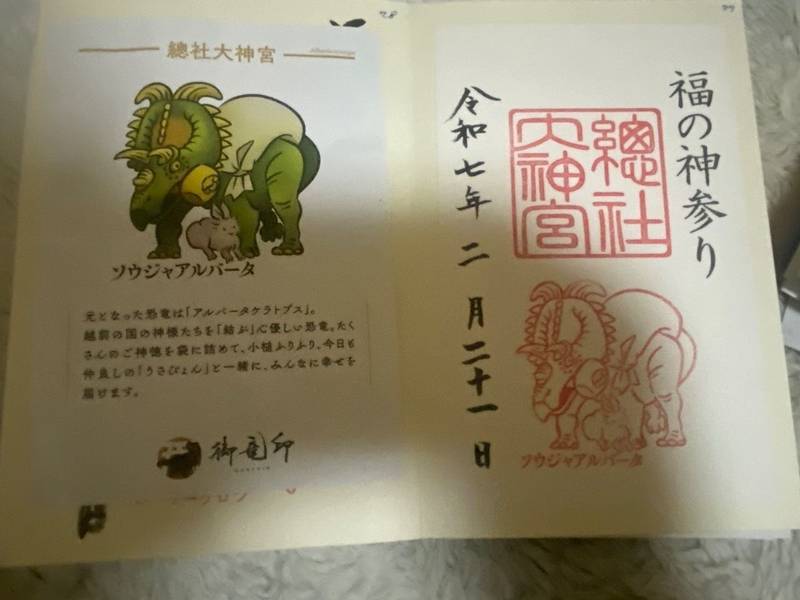 總社大神宮
ソウジャアルバータ
元となった恐竜は「アルバータケラトプス」。
越前の国の神様たちを「結ぶ」心優しい恐竜。たく
さんのご神徳を袋に詰めて、小槌ふりふり、今日も
仲良しの「うさぴょん」と一緒に、みんなに幸せを
届けます。
御竜印
福の神参り
總社
大神宮
令和七年二月二十一日
ソウジャアルバータ